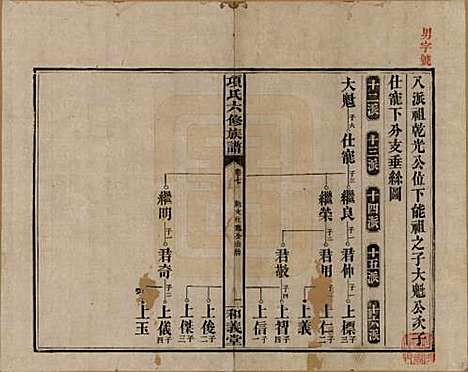 男字號
八派祖乾光公位下能祖之子大魁公次子
仕寵下分支垂絲圖
十二派
十三派
十四派
十五派
十六派
大魁 子六
仕寵 子三
繼良 子一
君仲 子一
上標 子三
繼榮 子二
君用 子二
上仁 子
上義
君敬 子四
上習 子四
上信 子一
項氏六修族譜
卷七
一
和義堂
上俊 子二
上傑 子三
繼明 子一
君奇 子二
上儀 子四
上玉